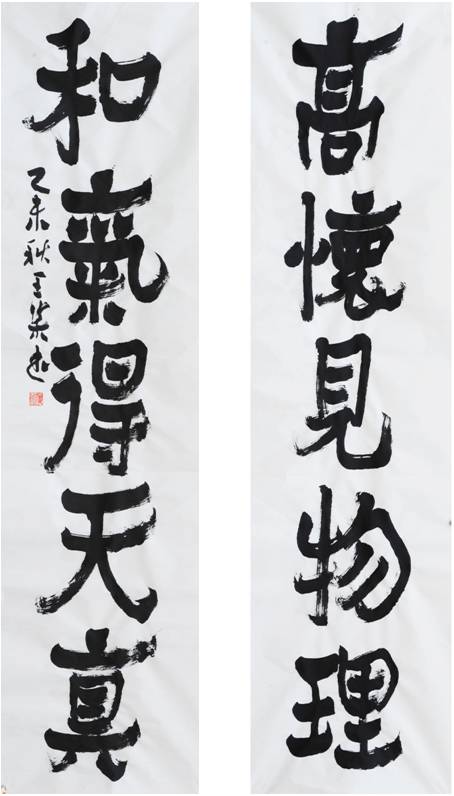 高懷見物理
和氣得天真
乙未秋王